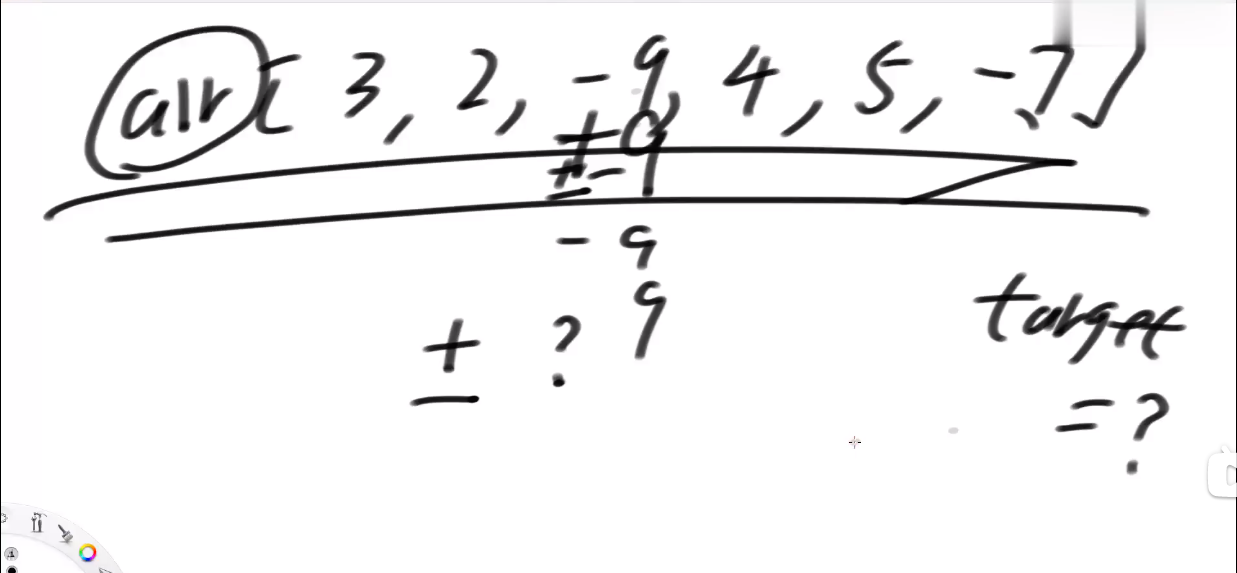 arr[ 3, 2, -9, 4, 5, -7]
+9
±-9
-9
9
± ?
target
= ?